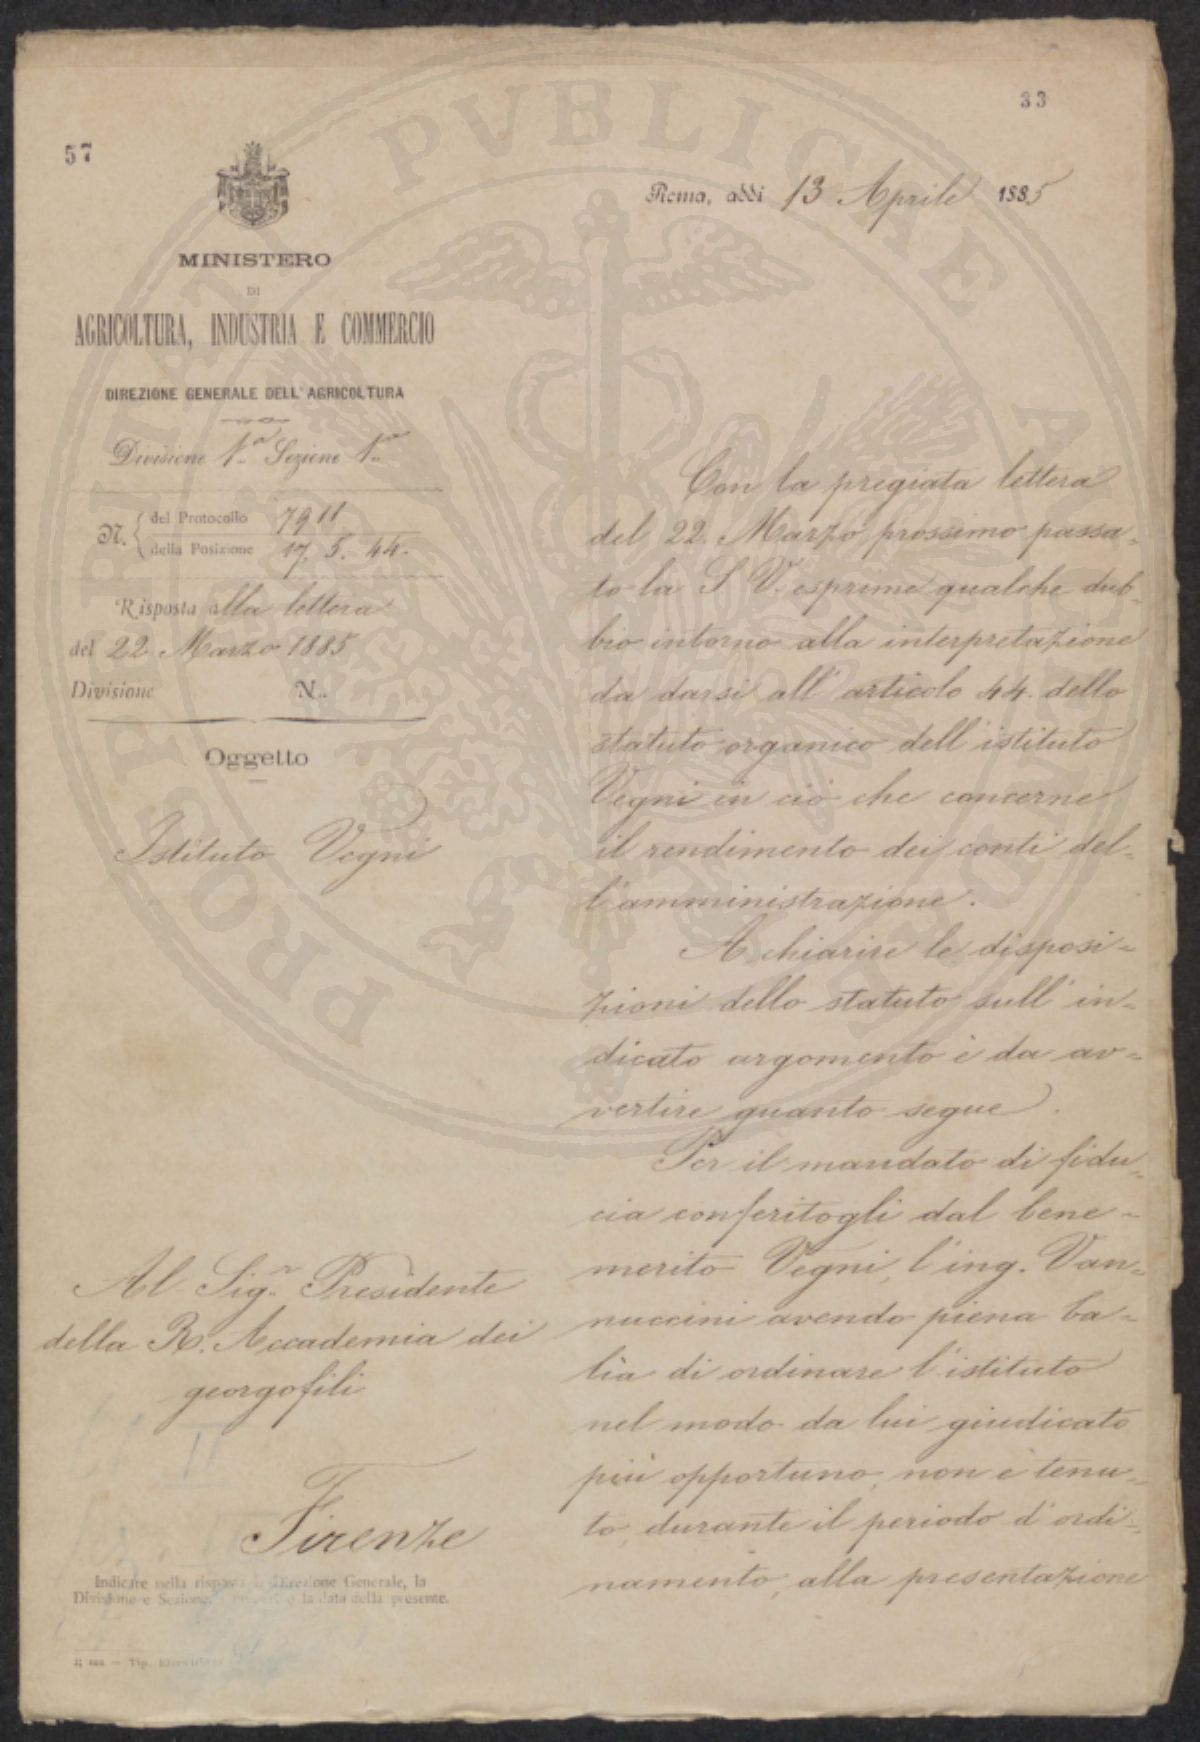 33
57
Roma, addì 13 Aprile 1885
MINISTERO
DI
AGRICOLTURA, INDUSTRIA E COMMERCIO
DIREZIONE GENERALE DELL'AGRICOLTURA
Divisione 1.a Sezione 1.a
N. del Protocollo 7911
della Posizione 17. 5. 44.
Risposta alla lettera
del 22 Marzo 1885
Divisione N.
Oggetto
Istituto Vegni
Al Sig.r Presidente
della R. Accademia dei
georgofili
Firenze
Indicare nella risposta la Direzione Generale, la
Divisione e Sezione, e la data della presente.
Con la pregiata lettera
del 22. Marzo prossimo passa-
to la S. V. esprime qualche dub-
bio intorno alla interpretazione
da darsi all'articolo 44. dello
statuto organico dell'istituto
Vegni in ciò che concerne
il rendimento dei conti del-
l'amministrazione.
A chiarire le disposi-
zioni dello statuto sull'in-
dicato argomento è da av-
vertire quanto segue.
Per il mandato di fidu-
cia conferitogli dal bene-
merito Vegni, l'ing. Van-
nuccini avendo piena ba-
lìa di ordinare l'istituto
nel modo da lui giudicato
più opportuno, non è tenu-
to, durante il periodo d'ordi-
namento, alla presentazione
PROSPERITATI PVBLICAE AVGENDAE